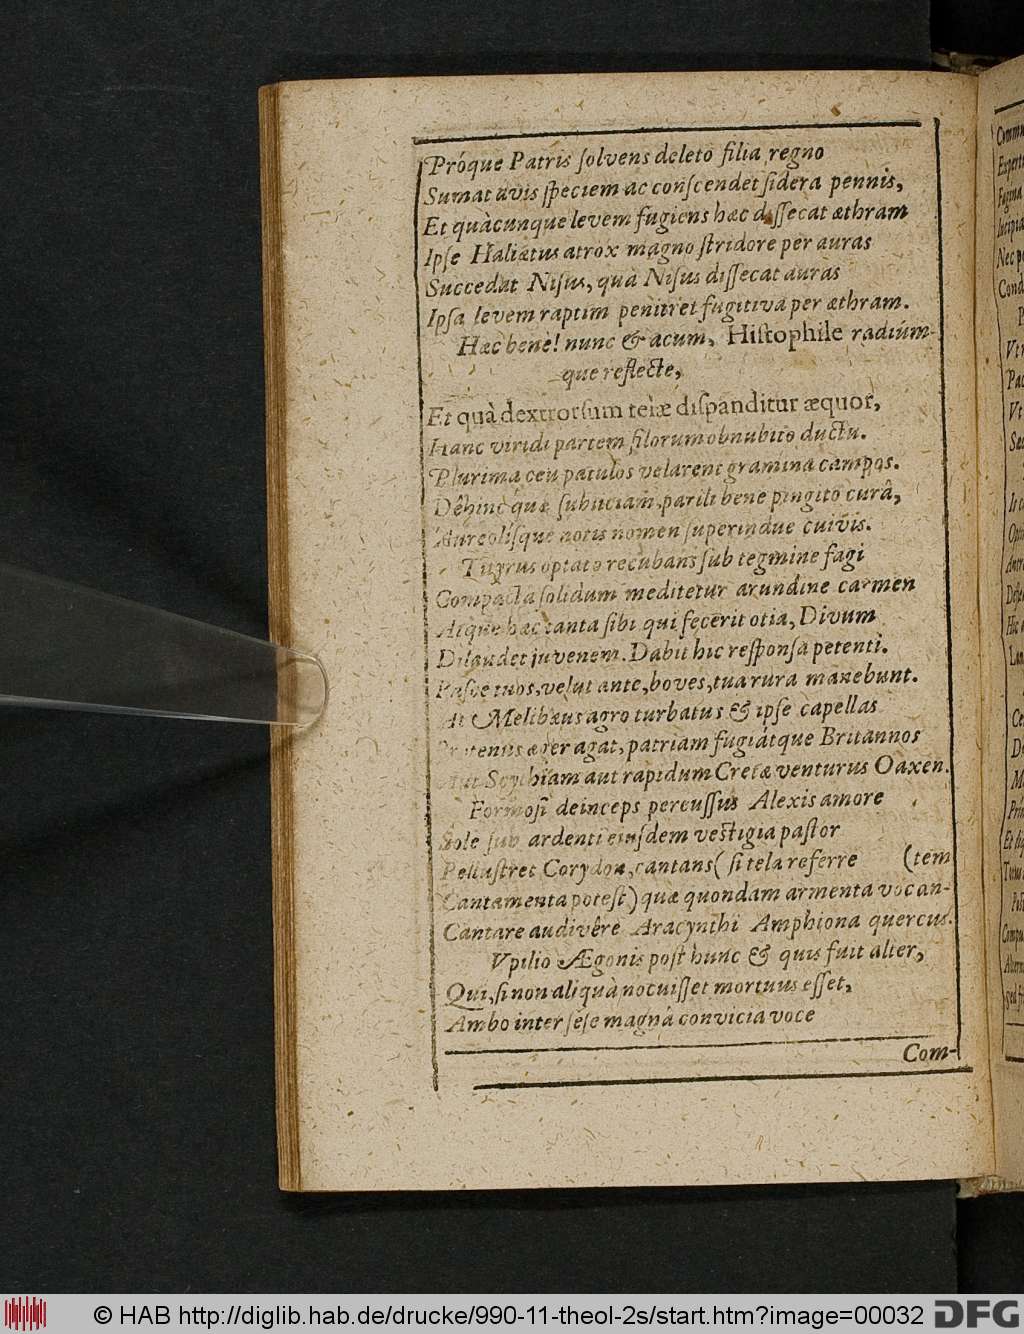 Próque Patris ſolvens deleto filia regno
Sumat avis ſpeciem ac conſcendet ſidera pennis,
Et quàcunque levem fugiens hæc diſſecat æthram
Ipſe Haliætus atrox magno ſtridore per auras
Succedat Niſus, quà Niſus diſſecat auras
Ipſa levem raptim penitret fugitiva per æthram.
Hæc benè! nunc & acum, Hiſtophile radiúm-
que reflecte,
Et quà dextrorſum terræ diſpanditur æquor,
Hanc viridi partem filorum obnubito ductu.
Plurima ceu patulos velarent gramina campos.
Dêhinc quæ ſubiiciam, parili bene pingito curâ,
Aureolíſque notis nomen ſuperindue cuivis.
Tityrus optato recubans ſub tegmine fagi
Compacta ſolidum meditetur arundine carmen
Atque hæc tanta ſibi qui fecerit otia, Divum
Dilaudet juvenem. Dabit hic reſponſa petenti.
Paſce tuos, velut ante, boves, tua rura manebunt.
At Melibæus agro turbatus & ipſe capellas
Protenus æger agat, patriam fugiátque Britannos
Aut Scythiam aut rapidum Cretæ venturus Oaxen.
Formoſi deinceps percuſſus Alexis amore
Sole ſub ardenti eiuſdem veſtigia paſtor
Pelluſtret Corydon, cantans ( ſi tela referre (tem
Cantamenta poteſt) quæ quondam armenta vocan-
Cantare audivêre Aracynthi Amphiona quercus.
Vpilio Ægonis poſt hunc & quis fuit alter,
Qui, ſi non aliquà nocuiſſet mortuus eſſet,
Ambo inter ſeſe magnà convicia voce
Com-
© HAB http://diglib.hab.de/drucke/990-11-theol-2s/start.htm?image=00032 DFG